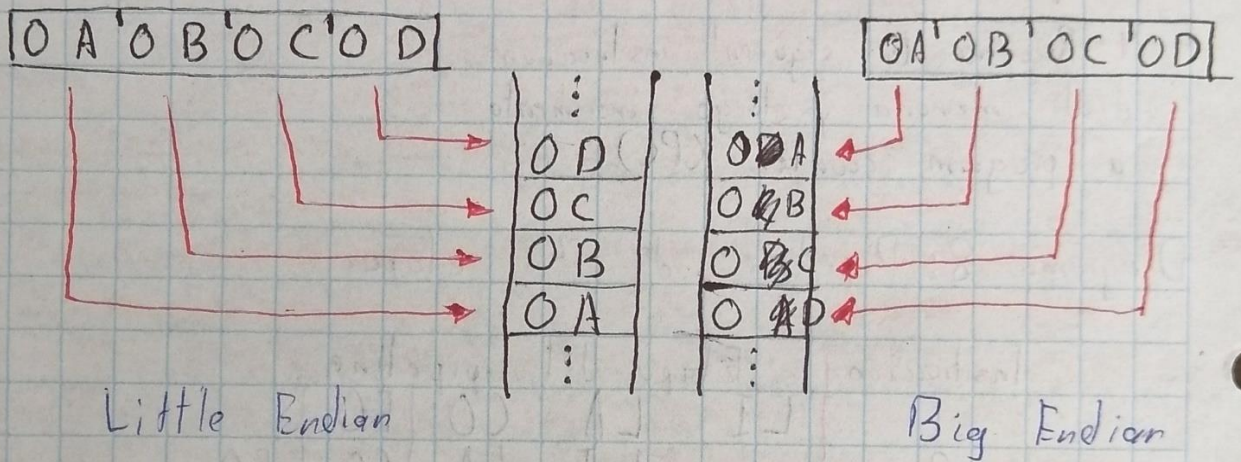 0 A ' 0 B ' 0 C ' 0 D
0A ' 0B ' 0C ' 0D
0 D
0 C
0 B
0 A
0 A
0 B
0 C
0 D
Little Endian
Big Endian